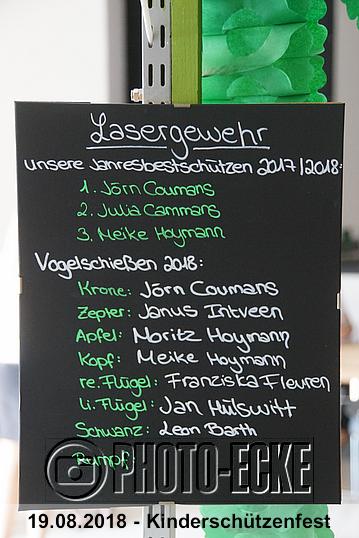 Lasergewehr
unsere Jahresbestschützen 2017/2018:
1. Jörn Coumans
2. Julia Cammans
3. Meike Hoymann
Vogelschießen 2018:
Krone: Jörn Coumans
Zepter: Janus Intveen
Apfel: Moritz Hoymann
Kopf: Meike Hoymann
re. Flügel: Franziska Fleuren
li. Flügel: Jan Hülswitt
Schwanz: Leon Barth
Rumpf:
© PHOTO-ECKE
19.08.2018 - Kinderschützenfest